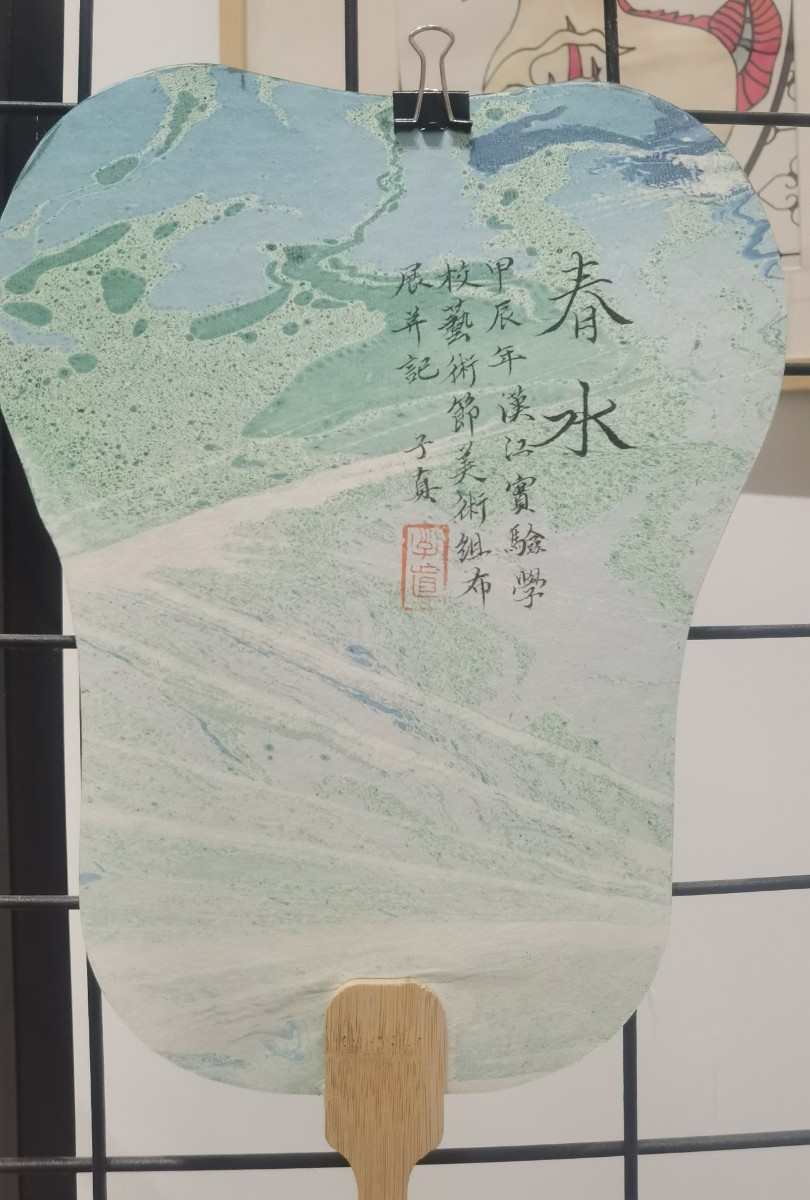 春水
甲辰年漢江實驗學
校藝術節美術組布
展并記 子真
子真